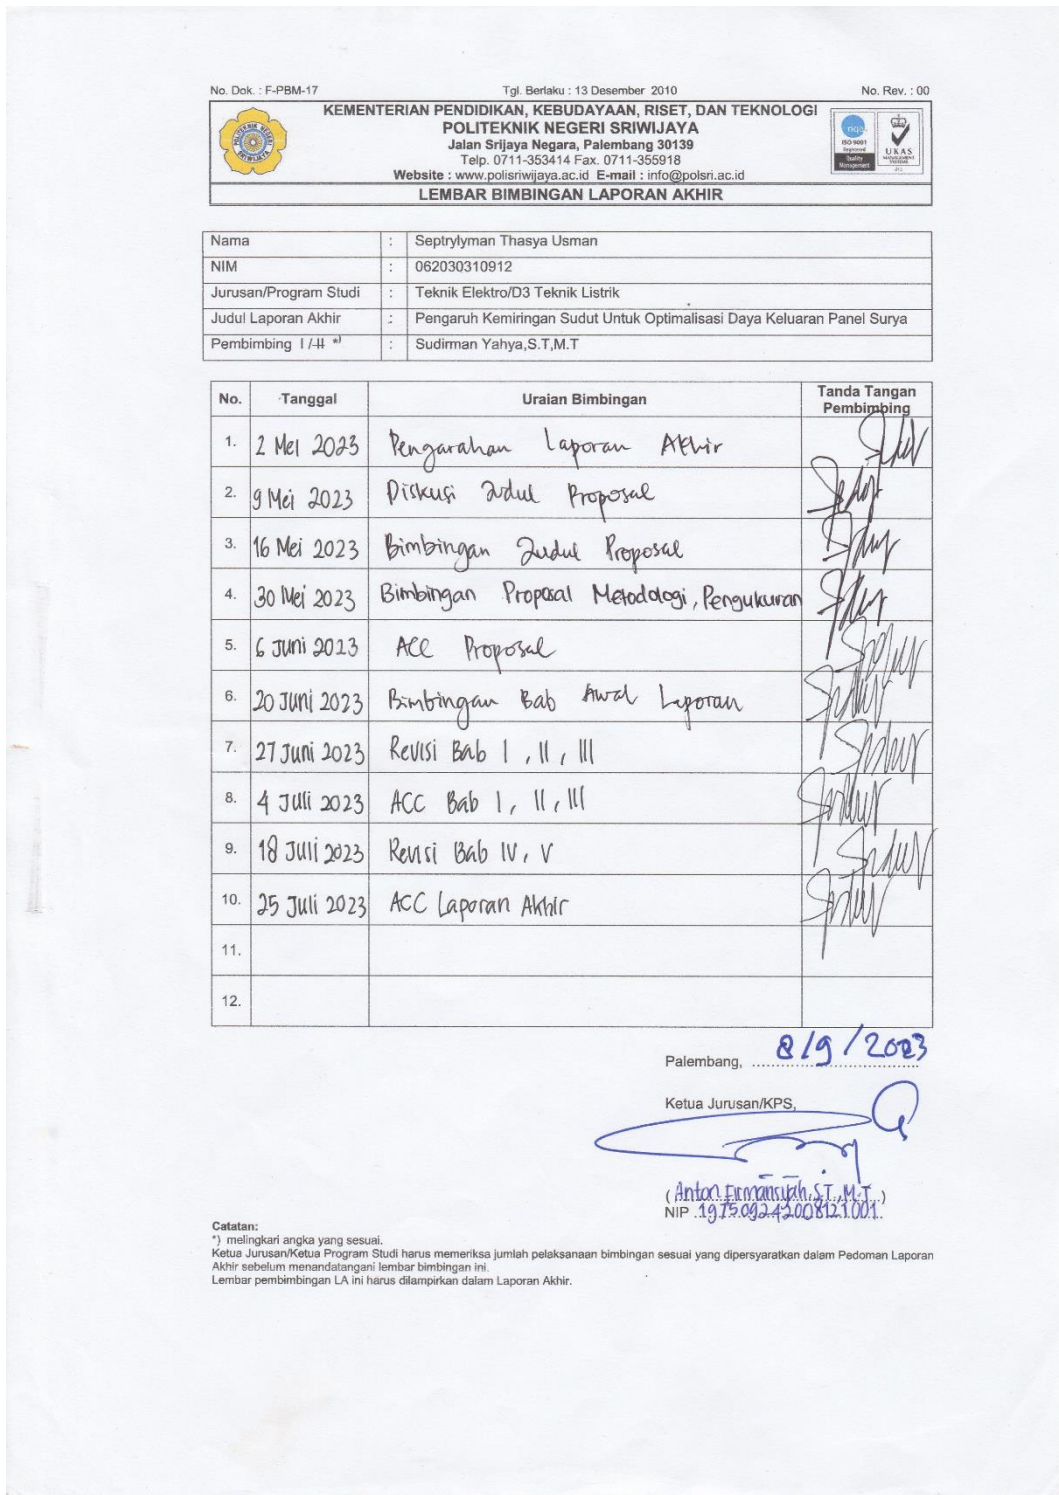 No. Dok. : F-PBM-17 Tgl. Berlaku : 13 Desember 2010 No. Rev. : 00
KEMENTERIAN PENDIDIKAN, KEBUDAYAAN, RISET, DAN TEKNOLOGI
POLITEKNIK NEGERI SRIWIJAYA
Jalan Srijaya Negara, Palembang 30139
Telp. 0711-353414 Fax. 0711-355918
Website : www.polisriwijaya.ac.id E-mail : info@polsri.ac.id
POLITEKNIK NEGERI SRIWIJAYA
nqa
ISO 9001
Registered
Quality
Management
UKAS
MANAGEMENT
SYSTEMS
LEMBAR BIMBINGAN LAPORAN AKHIR
Nama : Septrylyman Thasya Usman
NIM : 062030310912
Jurusan/Program Studi : Teknik Elektro/D3 Teknik Listrik
Judul Laporan Akhir : Pengaruh Kemiringan Sudut Untuk Optimalisasi Daya Keluaran Panel Surya
Pembimbing I /-II *) : Sudirman Yahya,S.T,M.T
No. Tanggal Uraian Bimbingan Tanda Tangan Pembimbing
1. 2 Mei 2023 Pengarahan Laporan Akhir
2. 9 Mei 2023 Diskusi Judul Proposal
3. 16 Mei 2023 Bimbingan Judul Proposal
4. 30 Mei 2023 Bimbingan Proposal Metodologi, Pengukuran
5. 6 Juni 2023 ACC Proposal
6. 20 Juni 2023 Bimbingan Bab Awal Laporan
7. 27 Juni 2023 Revisi Bab I , II , III
8. 4 Juli 2023 ACC Bab I, II, III
9. 18 Juli 2023 Revisi Bab IV, V
10. 25 Juli 2023 ACC Laporan Akhir
11.
12.
Palembang, 8/9/2023
Ketua Jurusan/KPS,
( Anton Firmansyah, S.T., M.T )
NIP 197509242008121001
Catatan:
*) melingkari angka yang sesuai.
Ketua Jurusan/Ketua Program Studi harus memeriksa jumlah pelaksanaan bimbingan sesuai yang dipersyaratkan dalam Pedoman Laporan
Akhir sebelum menandatangani lembar bimbingan ini.
Lembar pembimbingan LA ini harus dilampirkan dalam Laporan Akhir.